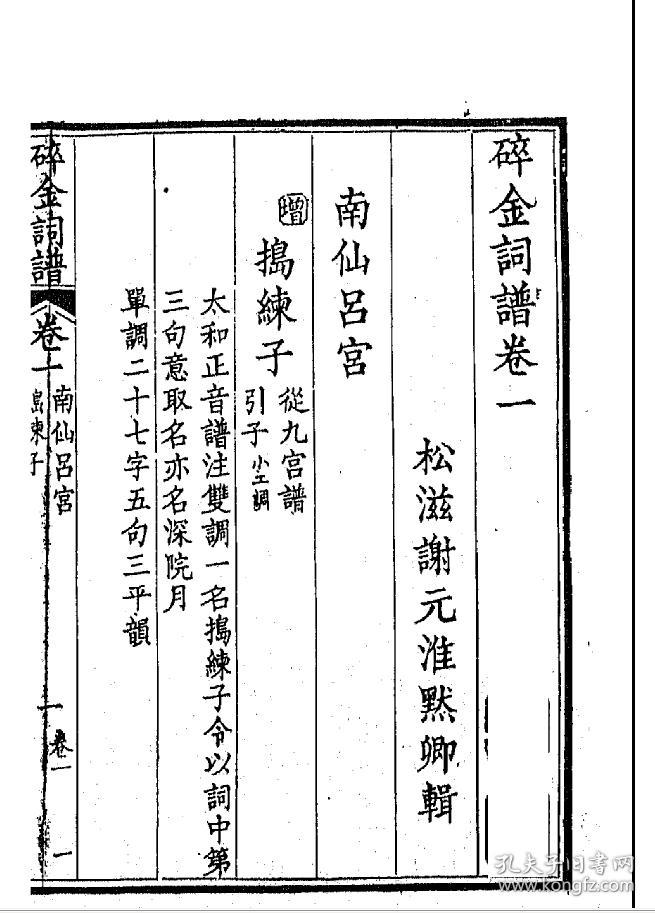 碎金詞譜卷一
松滋謝元淮默卿輯
南仙呂宮
增 搗練子 從九宮譜
引子 小工調
太和正音譜注雙調一名搗練子令以詞中第
三句意取名亦名深院月
單調二十七字五句三平韻
碎金詞譜 卷一 南仙呂宮
搗練子
一 卷一 一
孔夫子旧书网
www.kongfz.com